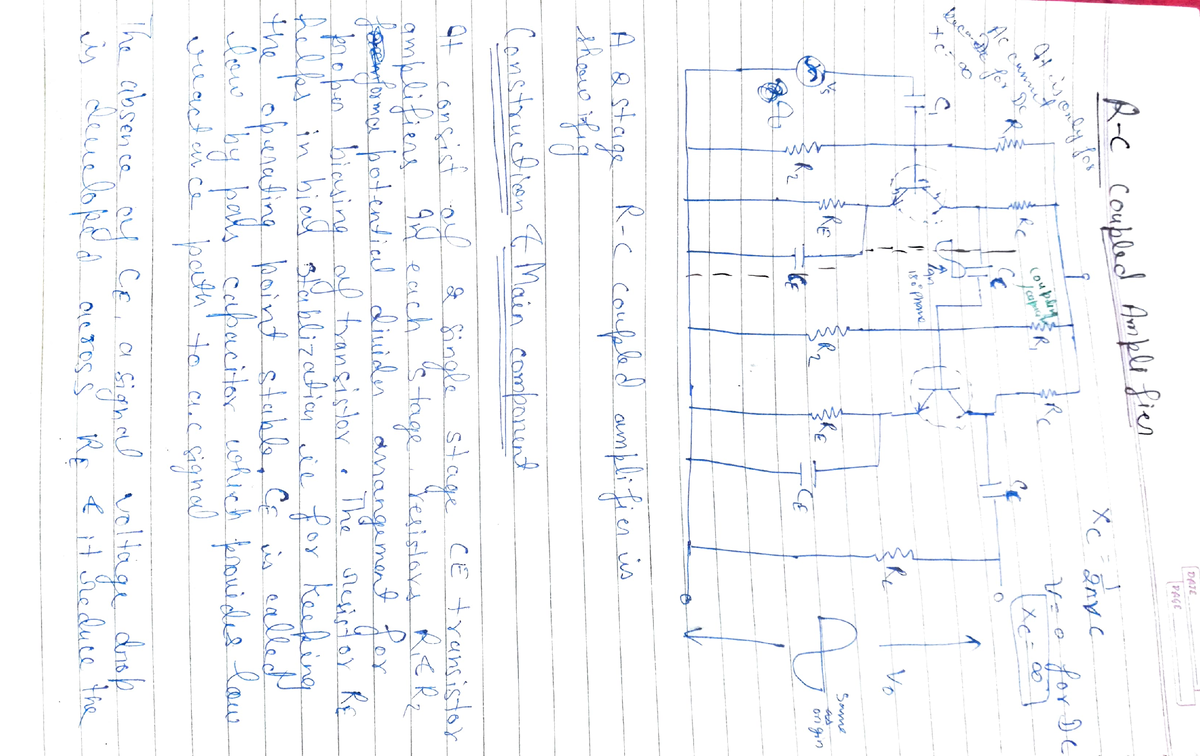 DATE
PAGE
R-C Coupled Amplifier
Xc = 1/2πνC
ν = 0 for DC
Xc = ∞
It is only for
AC current
because for DC
C1
R1
Rc
Cc
coupling
R1
Rc
Cc
Vs
R2
RE
CE
180° phase
R2
RE
CE
RL
Vo
Same
as
origin
A 2 stage R-C coupled amplifier is
show if fig
Construction & Main component
It consist of 2 single stage CE transistor
amplifiers In each stage resistors R1 & R2
forma potential divider arrangement for
propor biasing of transistor. The resistor RE
helps in biad stablization ie for keeping
the operating point stable. CE is called
low by pass capacitor which provides low
reactance path to a.c signal
The absence of CE, a signal voltage drop
is developed across RE & it reduce the